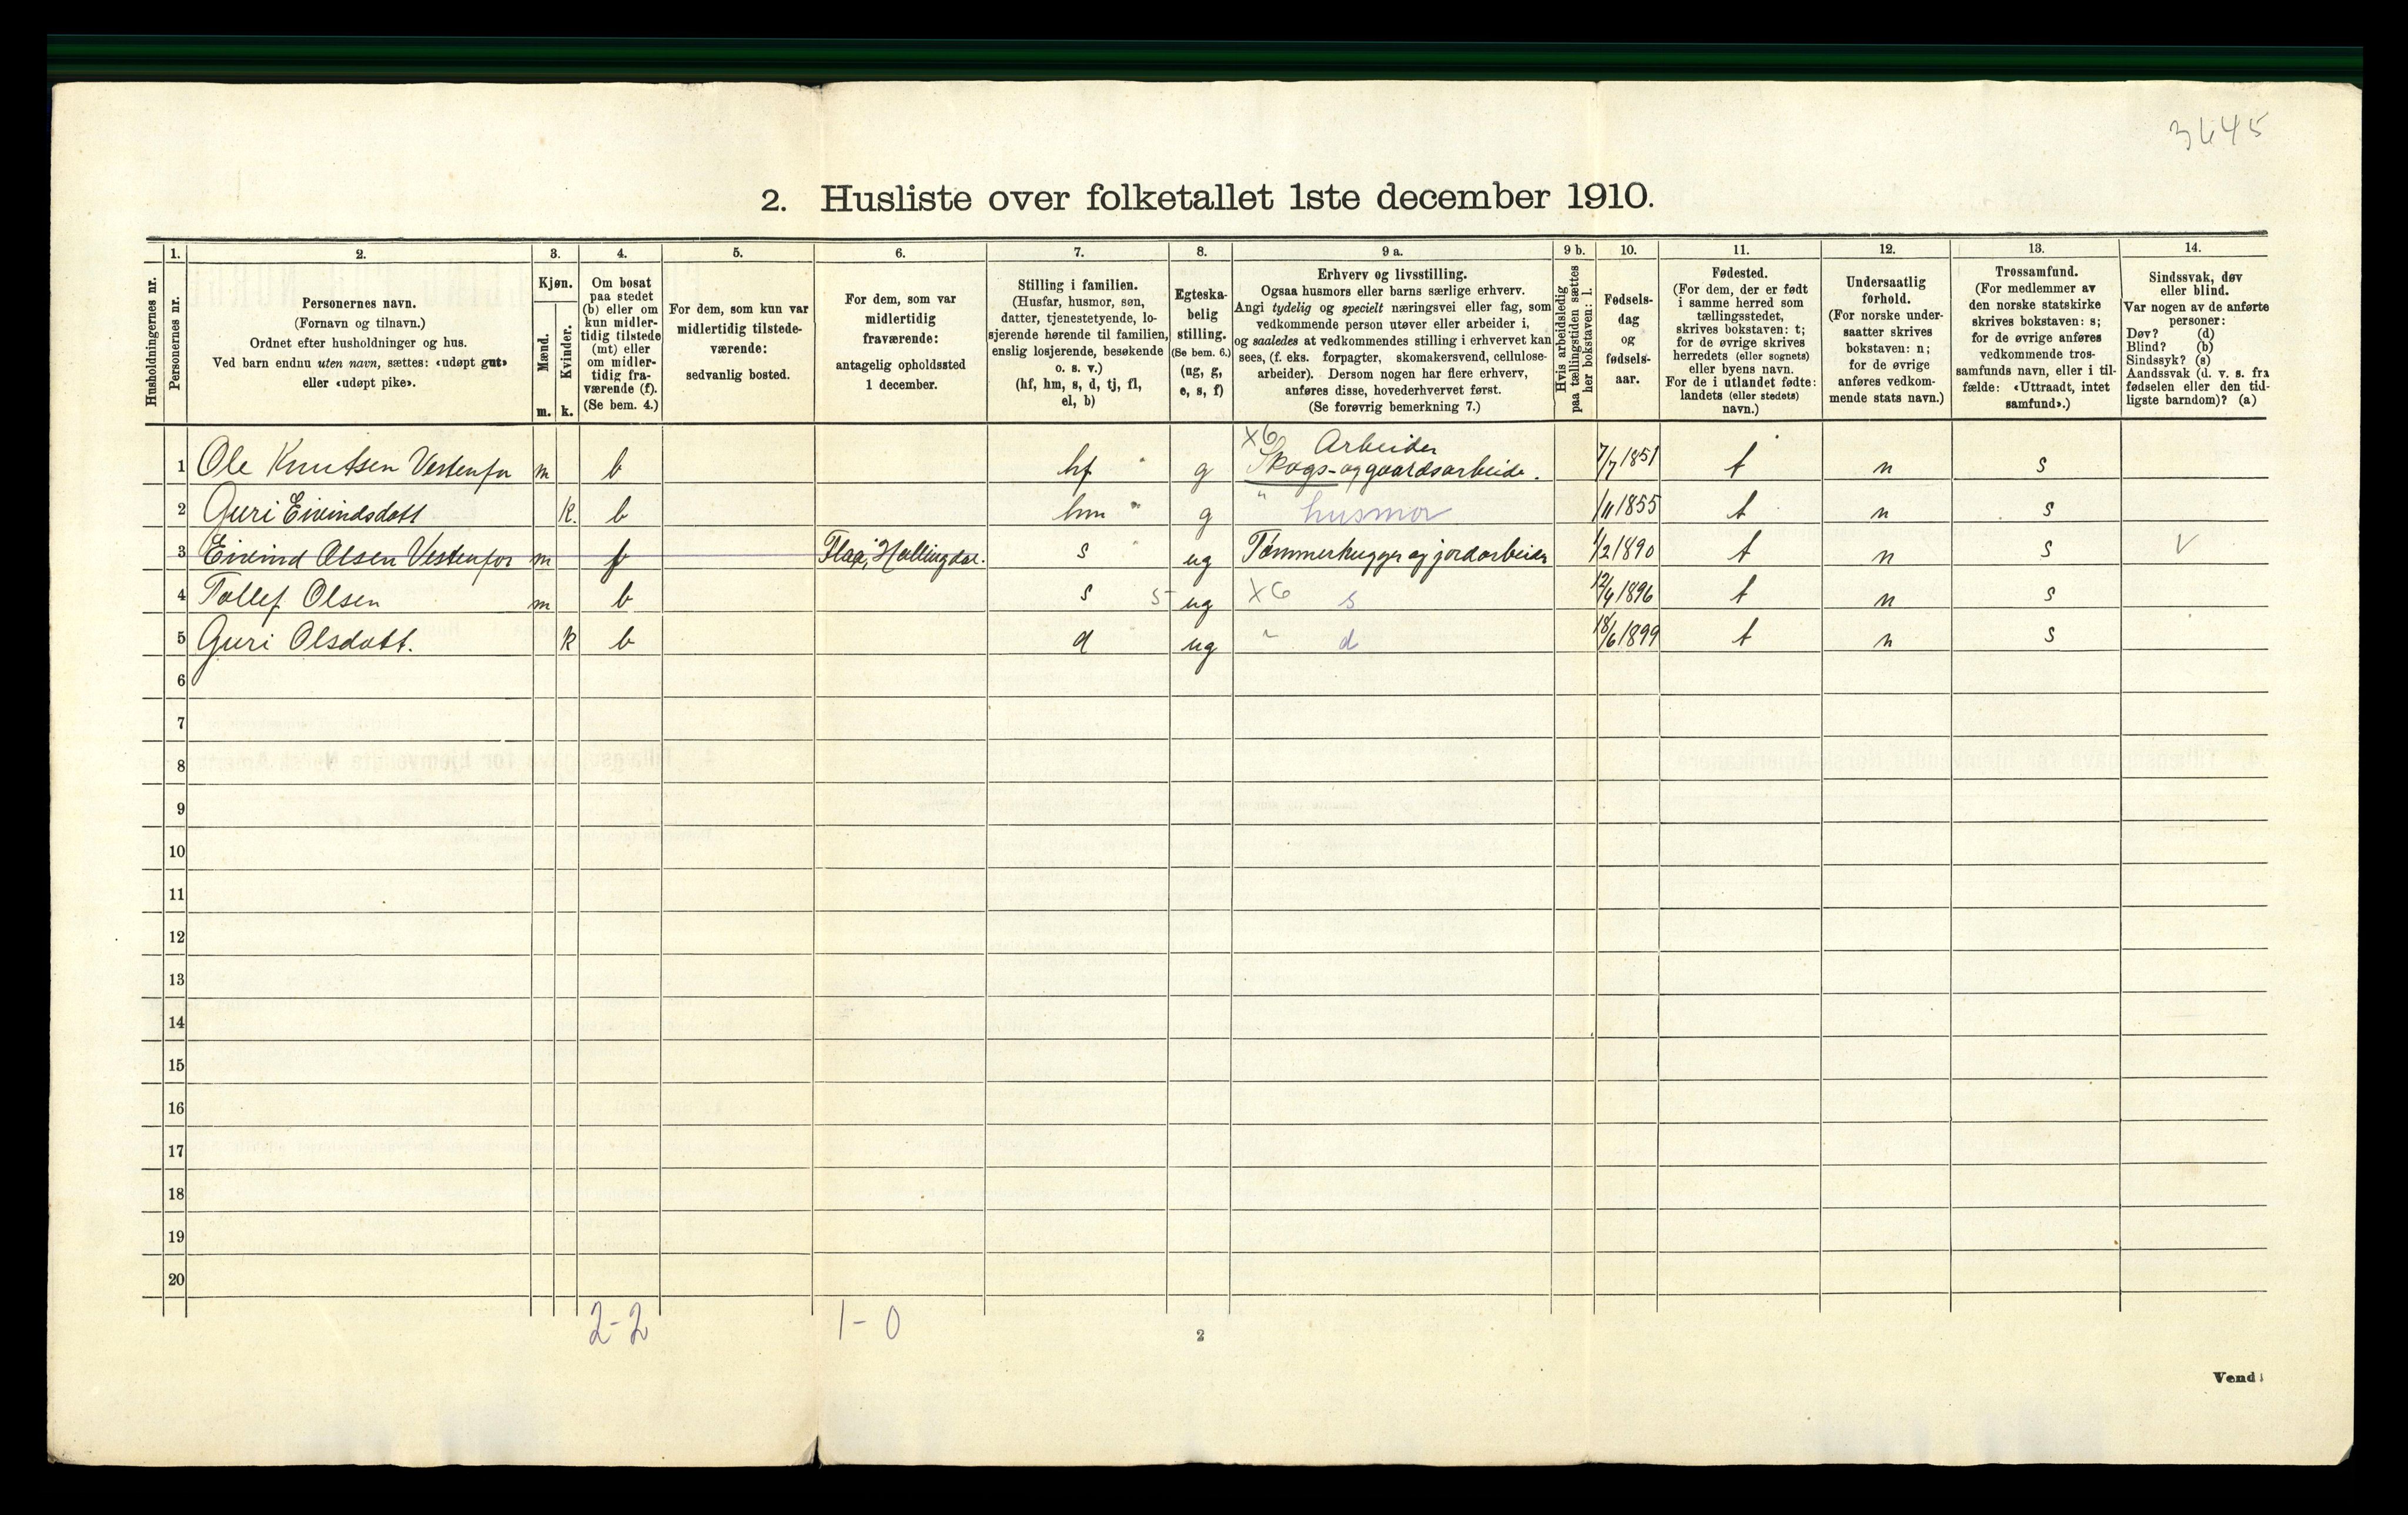 3645
2. Husliste over folketallet 1ste december 1910.
Husholdningernes nr.
1.
Personernes nr.
2.
Personernes navn.
(Fornavn og tilnavn.)
Ordnet efter husholdninger og hus.
Ved barn endnu uten navn, sættes: «udøpt gut»
eller «udøpt pike».
3.
Kjøn.
Mænd.
m.
Kvinder.
k.
4.
Om bosat
paa stedet
(b) eller om
kun midler-
tidig tilstede
(mt) eller
om midler-
tidig fra-
værende (f).
(Se bem. 4.)
5.
For dem, som kun var
midlertidig tilstede-
værende:
sedvanlig bosted.
6.
For dem, som var
midlertidig
fraværende:
antagelig opholdssted
1 december.
7.
Stilling i familien.
(Husfar, husmor, søn,
datter, tjenestetyende, lo-
sjerende hørende til familien,
enslig losjerende, besøkende
o. s. v.)
(hf, hm, s, d, tj, fl,
el, b)
8.
Egteska-
belig
stilling.
(Se bem. 6.)
(ug, g,
e, s, f)
9 a.
Erhverv og livsstilling.
Ogsaa husmors eller barns særlige erhverv.
Angi tydelig og specielt næringsvei eller fag, som
vedkommende person utøver eller arbeider i,
og saaledes at vedkommendes stilling i erhvervet kan
sees, (f. eks. forpagter, skomakersvend, cellulose-
arbeider). Dersom nogen har flere erhverv,
anføres disse, hovederhvervet først.
(Se forøvrig bemerkning 7.)
9 b.
Hvis arbeidsledig
paa tællingstiden sættes
her bokstaven: l.
10.
Fødsels-
dag
og
fødsels-
aar.
11.
Fødested.
(For dem, der er født
i samme herred som
tællingsstedet,
skrives bokstaven: t;
for de øvrige skrives
herredets (eller sognets)
eller byens navn.
For de i utlandet fødte:
landets (eller stedets)
navn.)
12.
Undersaatlig
forhold.
(For norske under-
saatter skrives
bokstaven: n;
for de øvrige
anføres vedkom-
mende stats navn.)
13.
Trossamfund.
(For medlemmer av
den norske statskirke
skrives bokstaven: s;
for de øvrige anføres
vedkommende tros-
samfunds navn, eller i til-
fælde: «Uttraadt, intet
samfund».)
14.
Sindssvak, døv
eller blind.
Var nogen av de anførte
personer:
Døv? (d)
Blind? (b)
Sindssyk? (s)
Aandssvak (d. v. s. fra
fødselen eller den tid-
ligste barndom)? (a)
X6 Arbeider
1 Ole Knutsen Vestenfor m b hf g Skogs- og gaardsarbeide. 7/7 1851 t n s
2 Guri Eivindsdatt k. b hm g " husmor 1/11 1855 t n s
3 Eivind Olsen Vestenfor m f Flaa, Hallingdal. s ug Tømmerhugger og jordarbeider 1/2 1890 t n s V
4 Tollef Olsen m b s s ug X6 s 12/4 1896 t n s
5 Guri Olsdatt. k b d ug " d 18/6 1899 t n s
6
7
8
9
10
11
12
13
14
15
16
17
18
19
20
2-2 1-0
2
Vend!